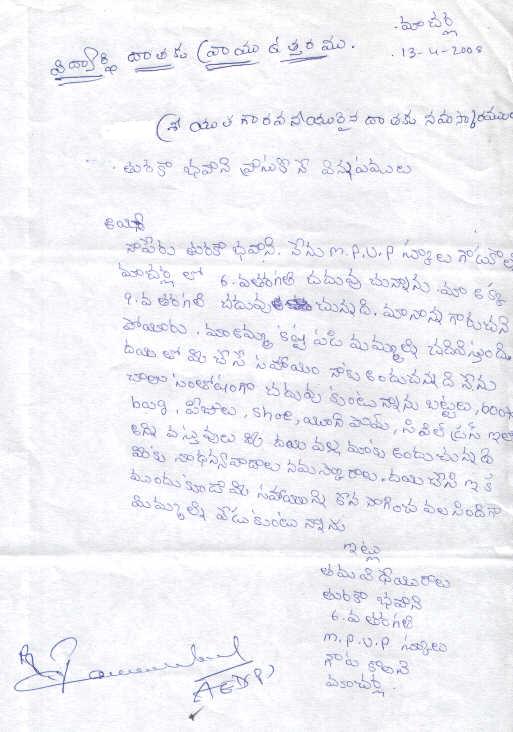 మాచర్ల
13-4-2008
విద్యార్థి దాతకు వ్రాయు ఉత్తరము.
శ్రీయుత గౌరవనీయులైన దాతకు నమస్కారములు
తురకా భవాని వ్రాసుకొనే విన్నపములు
అయ్యా
నాపేరు తురకా భవాని. నేను M.P.U.P స్కూలు గాడుకాలనీ
మాచర్ల లో 6.వతరగతి చదువు చున్నాను. మా అక్క
9.వ తరగతి చదువు చున్నది. మానాన్న గారు చని
పోయారు. మాఅమ్మ కష్ట పడి మమ్మల్ని చదివిస్తుంది.
దయ తో మీరు చేసే సహాయం నాకు అందుచున్నది నేను
చాలా సంతోషంగా చదువు కుంటున్నాను బట్టలు, book
bag, పేజాలు, shoe, యూనిఫామ్, సివిల్ డ్రస్ ఇలా
అన్ని వస్తువులు మీ దయ వల్ల మాకు అందుచున్నది
మీకు నాధన్యవాదాలు నమస్కారాలు. దయ చేసి ఇక
ముందుకూడా మీ సహాయాన్ని కొన సాగించ వలసిందిగా
మిమ్మల్ని వేడుకుంటున్నాను
ఇట్లు
తమ విధేయురాలు
తురకా భవాని
6.వ తరగతి
M.P.U.P స్కూలు
గాడు కాలనీ
మాచర్ల.